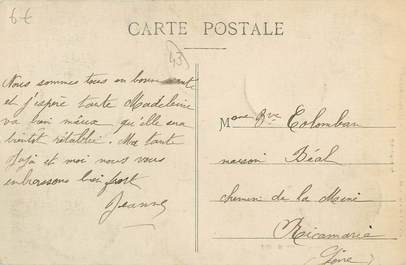 6€
CARTE POSTALE
43
Nous sommes tous en bonne santé
et j'espère tante Madeleine
va bien mieux, qu'elle sera
bientôt rétablie. Ma tante
et moi nous vous
embrassons bien fort
Jeanne
Mme Vve Colomban
maison Béal
chemin de la Mairie
Ricamarie
Loire